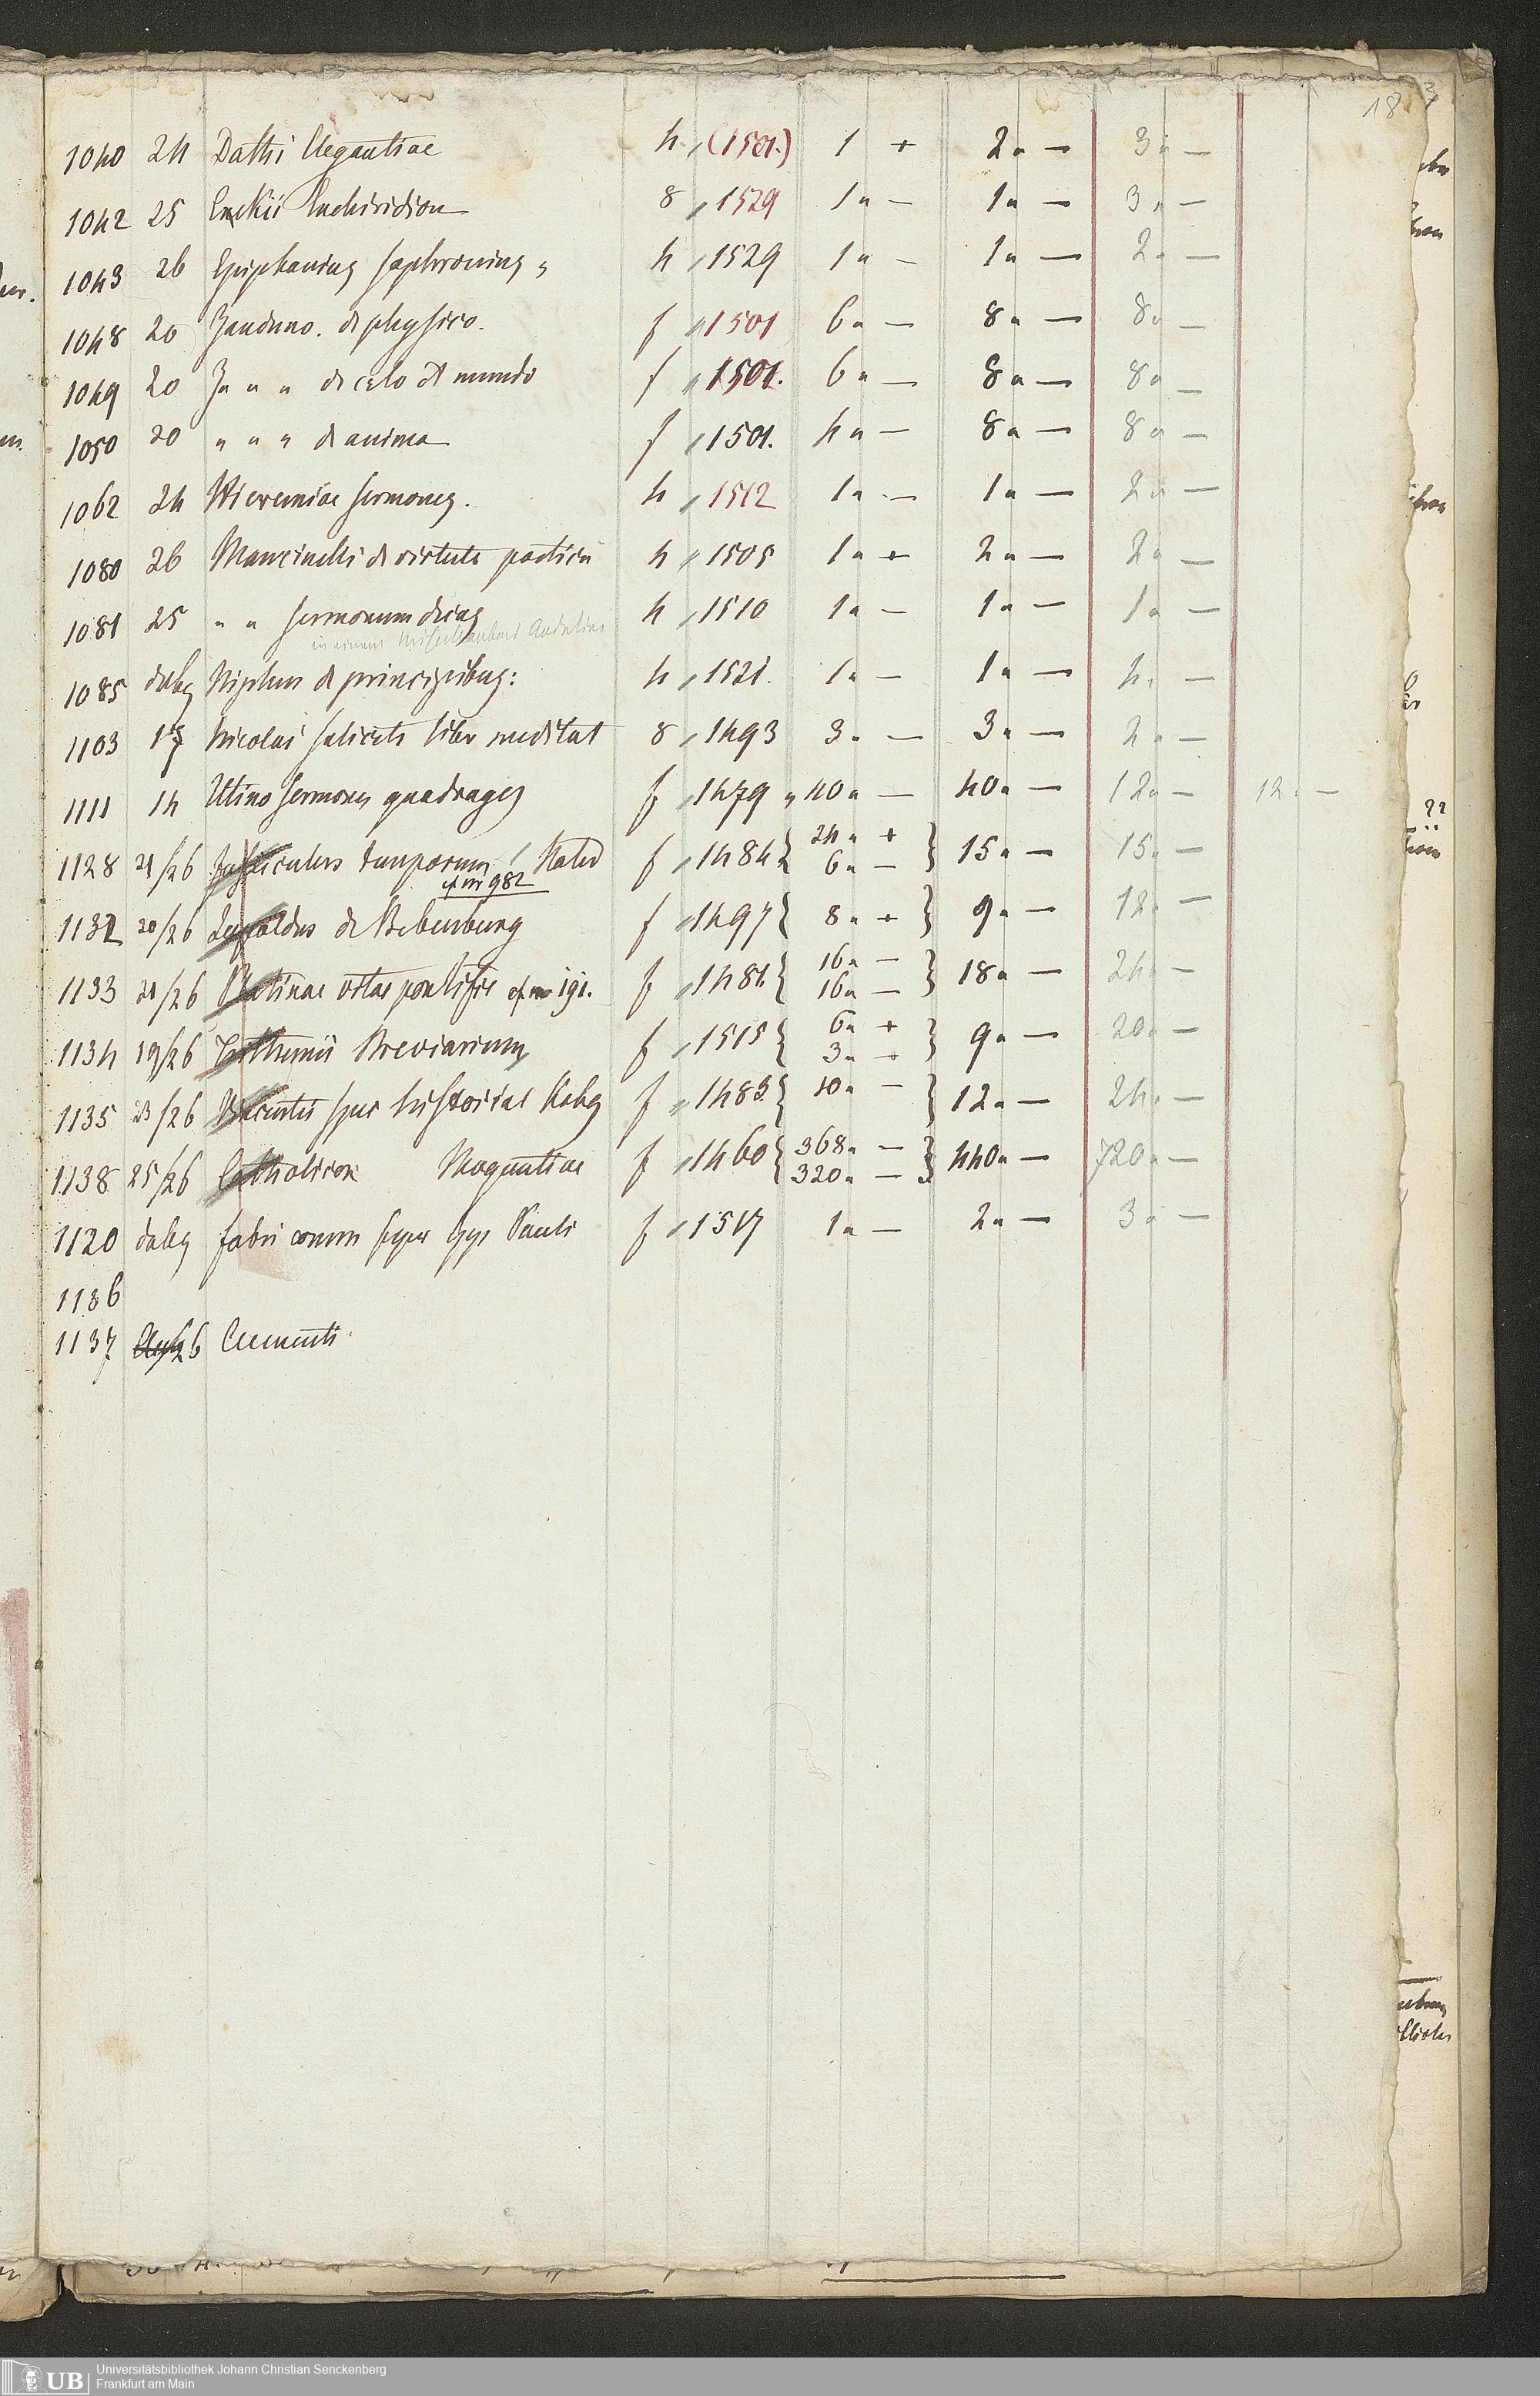 18
1040 24 Dathi Elegantiae 4 (1501.) 1 + 2 " — 3 " —
1042 25 Eckii Enchiridion 8 1529 1 " — 1 " — 3 " —
1043 26 Epiphanius sophronius " 4 1529 1 " — 1 " — 2 " —
1048 20 Janduno. de physico. f 1501 6 " — 8 " — 8 " —
1049 20 Ja " " de celo et mundo f 1501. 6 " — 8 " — 8 " —
1050 20 " " " de anima f 1501. 4 " — 8 " — 8 " —
1062 24 Hieremiae sermones. 4 1512 1 " — 1 " — 2 " —
1080 26 Mancinelli de virtute poetica 4 1505 1 " + 2 " — 2 " —
1081 25 " " sermonum 4 1510 1 " — 1 " — 1 " —
in einem
1085 Niphus de principibus: 4 1521. 1 " — 1 " — 4 " —
1103 Nicolai saliceti liber meditat 8 1493 3 " — 3 " — 2 " —
1111 14 Utino sermones quadrages f 1479 " 40 " — 40 " — 12 " — 12 " —
1128 21/26 Fasciculus temporum f 1484 { 24 " + 6 " — } 15 " — 15 " —
cf nr 982
1132 20/26 Lupoldus de Bebenburg f 1497 { 8 " + } 9 " — 12 " —
1133 21/26 Platinae vitae pontific cf nr 191. f 1481 { 16 " — 16 " — } 18 " — 24 " —
1134 19/26 Trithemii Breviarium f 1515 { 6 " + 3 " + } 9 " — 20 " —
1135 23/26 Vincentii spec historiae f 1483 { 10 " — } 12 " — 24 " —
1138 25/26 Catholicon Moguntiae f 1460 { 368 " — 320 " — } 440 " — 720 " —
1120 fabri comm super Epp Pauli f 1517 1 " — 2 " — 3 " —
1186
1137 26 Clementi
UB Universitätsbibliothek Johann Christian Senckenberg
Frankfurt am Main